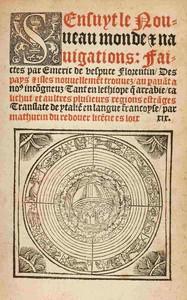 Sensuyt le Nou
ueau monde & na
uigations: Fai-
ctes par Emeric de vespuce Florentin/ Des
pays & isles nouuellemẽt trouuez/ au pauãt a
noꝰ incõgneuz Tant en lethiope q̃ arrabie/ ca
lichut et aultres plusieurs regions estrãges
Translate de ytaliẽ en langue frãncoyse/ par
mathurin du redouer licẽcie es loix
xix.